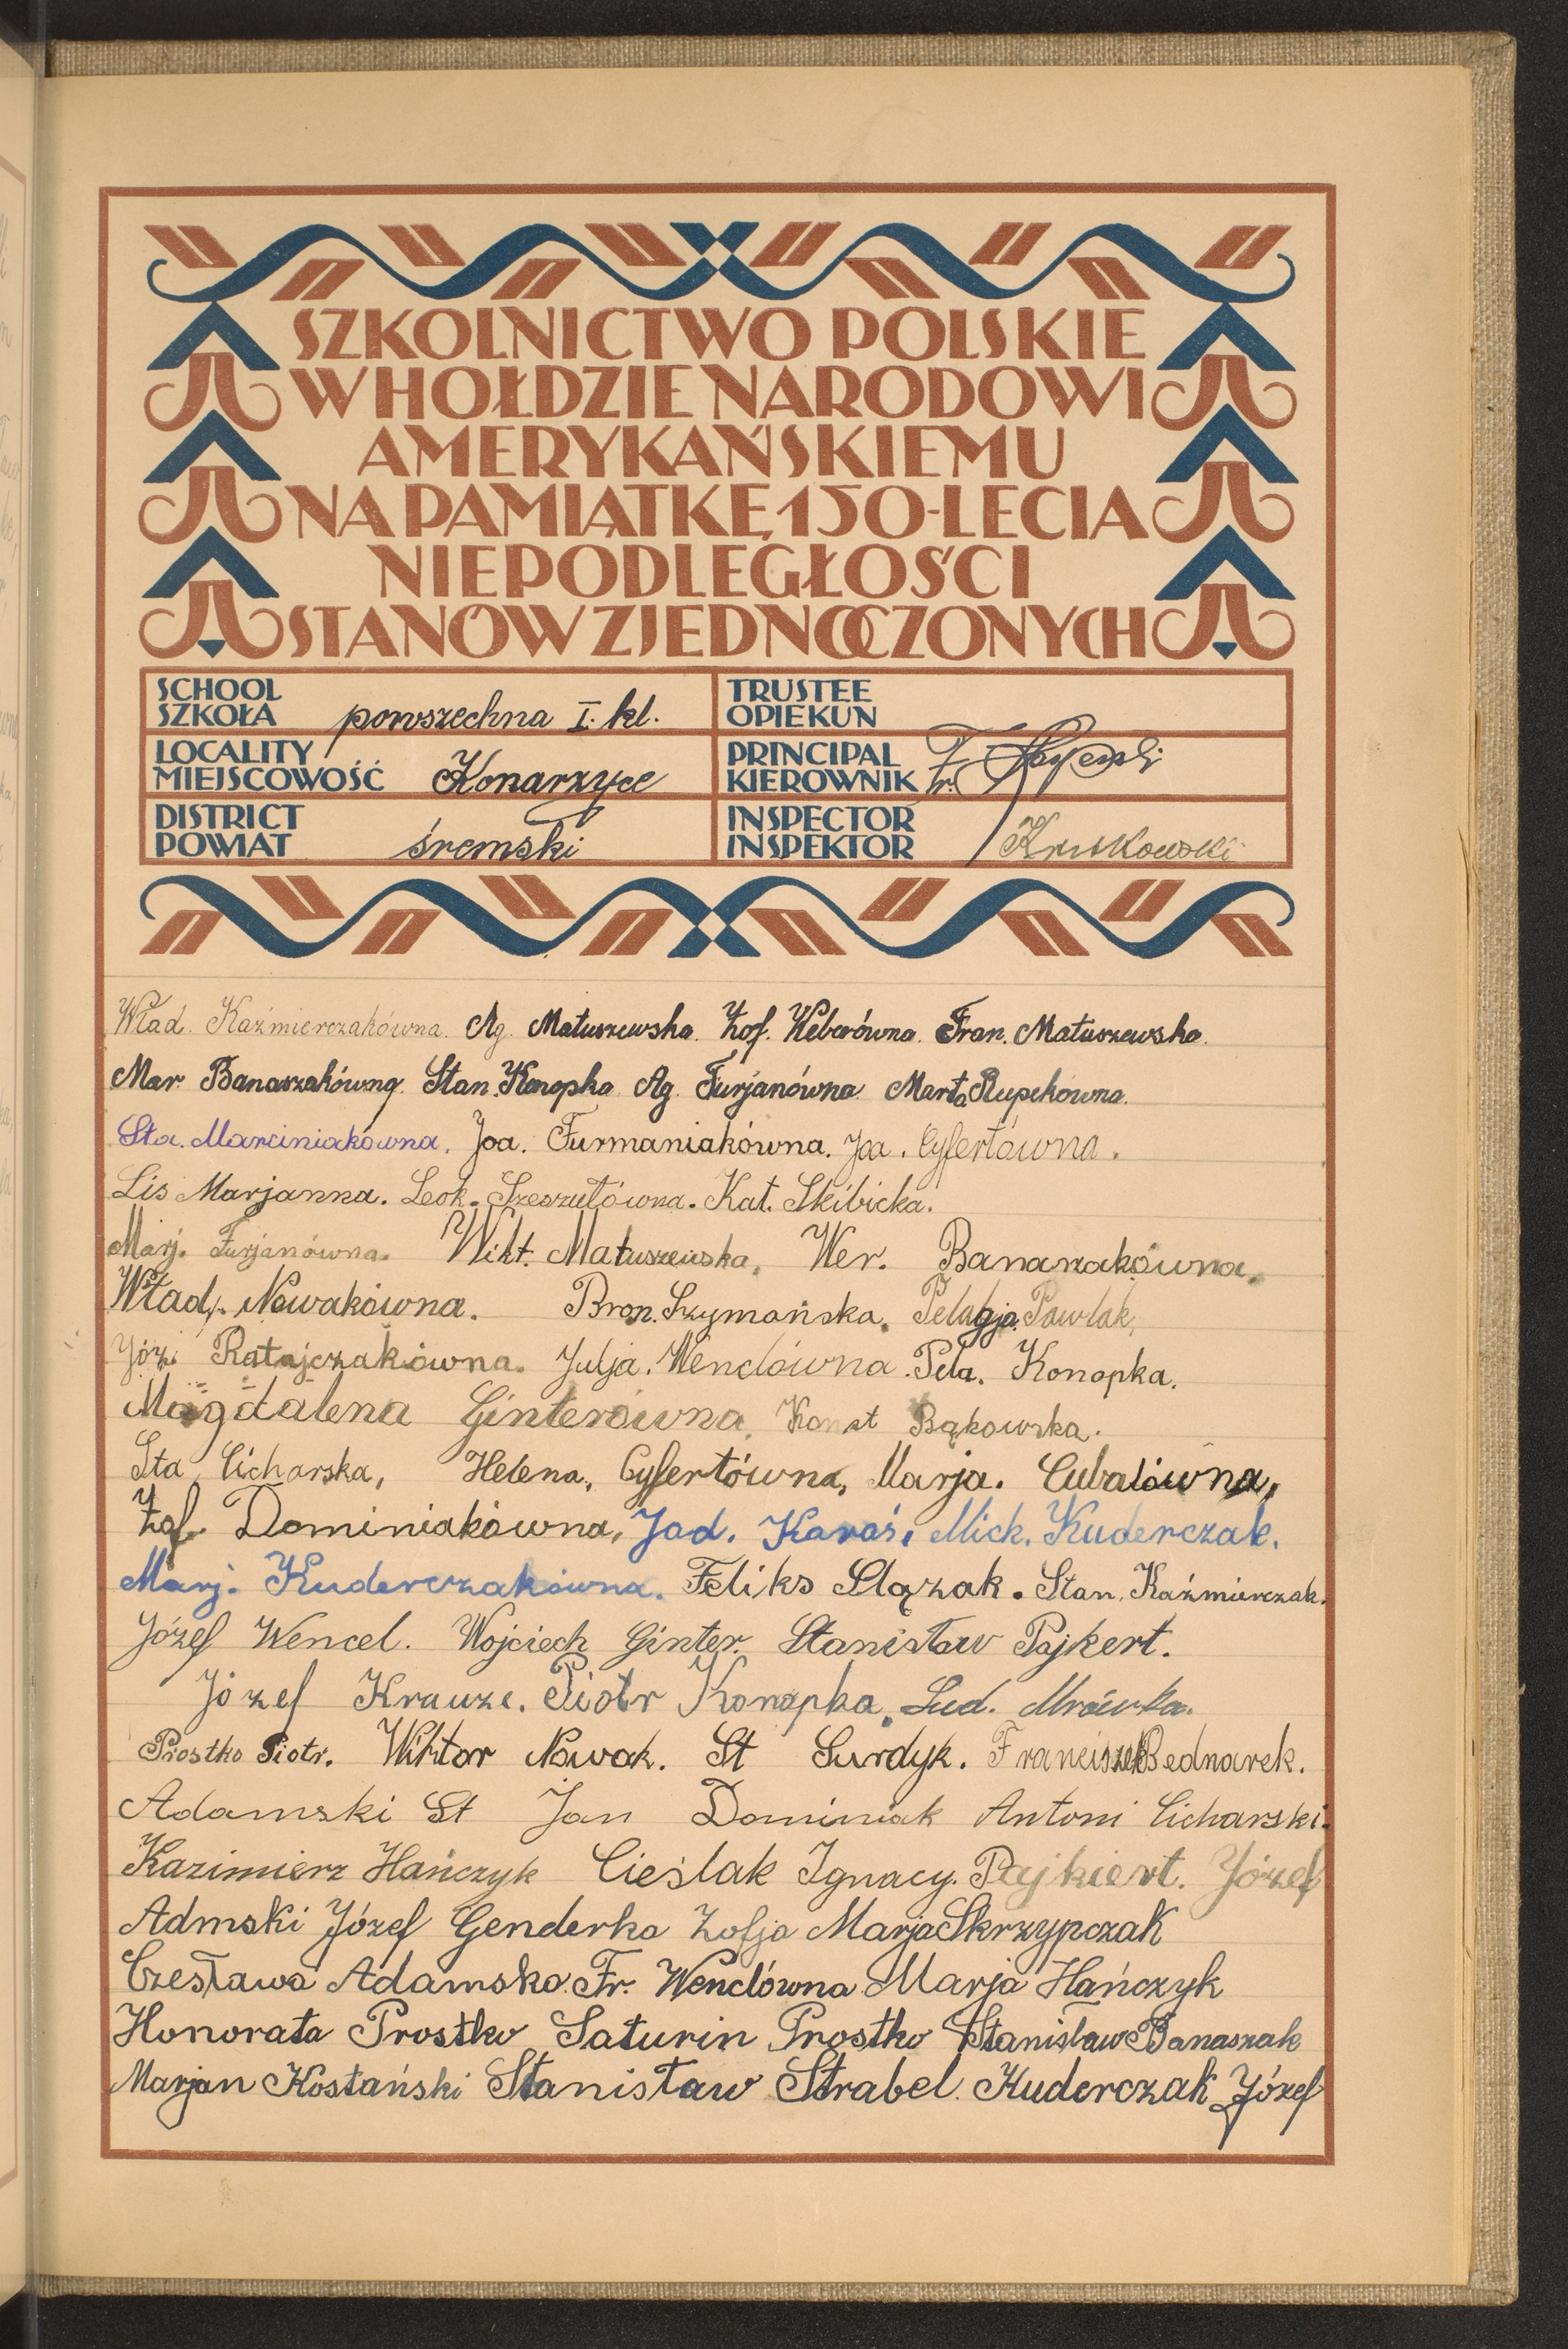 SZKOLNICTWO POLSKIE
W HOŁDZIE NARODOWI
AMERYKAŃSKIEMU
NA PAMIĄTKĘ 150-LECIA
NIEPODLEGŁOŚCI
STANÓW ZJEDNOCZONYCH
SCHOOL
SZKOŁA powszechna I. kl.
TRUSTEE
OPIEKUN
LOCALITY
MIEJSCOWOŚĆ Konarzyce
PRINCIPAL
KIEROWNIK Fr.
DISTRICT
POWIAT śremski
INSPECTOR
INSPEKTOR Krukowski
Wład. Kaźmierczakówna. Ag. Matuszewska. Zof. Weberówna. Fran. Matuszewska.
Mar. Banaszakówna. Stan. Konopka Ag. Furjanówna Marta Rupekówna.
Sta. Marciniakówna. Joa. Furmaniakówna. Joa. Cyfertówna.
Lis Marjanna. Leok. Szeszułówna. Kat. Skibicka.
Marj. Furjanówna. Wikt. Matuszewska, Wer. Banaszakówna.
Wład. Nowakówna. Bron. Szymańska. Pelagja Pawlak,
Józ. Ratajczakówna. Julja. Wenclówna. Pela. Konopka.
Magdalena Ginterówna, Konst Bąkowska.
Sta. Cicharska, Helena, Cyfertówna, Marja. Cubalówna,
Zof. Dominiakówna, Jad. Karaś, Mich. Kuderczak.
Marj. Kuderczakówna. Feliks Ślązak. Stan. Kaźmierczak.
Józef Wencel. Wojciech Ginter. Stanisław Pajkert.
Józef Krauze. Piotr Konopka, Lud. Mrówka.
Prostko Piotr. Wiktor Nowak. St Surdyk. Franciszek Bednarek.
Adamski St Jan Dominiak Antoni Cicharski.
Kazimierz Hańczyk Cieślak Ignacy. Pajkiert. Józef
Admski Józef Genderka Zofja Marja Skrzypczak
Czesława Adamska. Fr. Wenclówna Marja Hańczyk
Honorata Prostko Saturin Prostko Stanisław Banaszak
Marjan Kostański Stanisław Strabel. Kuderczak Józef